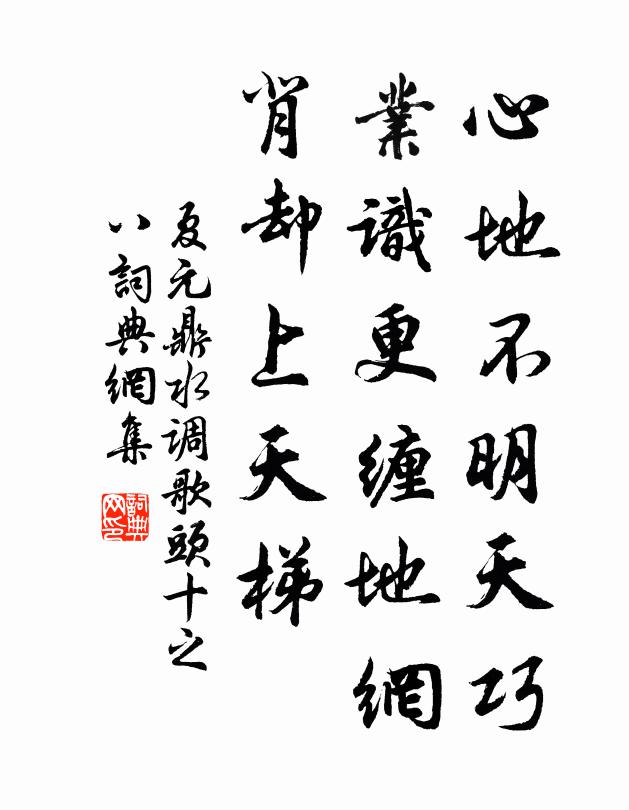 心地不明天巧
業識更纏地網
肯却上天梯
夏元鼎水调歌頭十之
八詞典網集
詞典網印